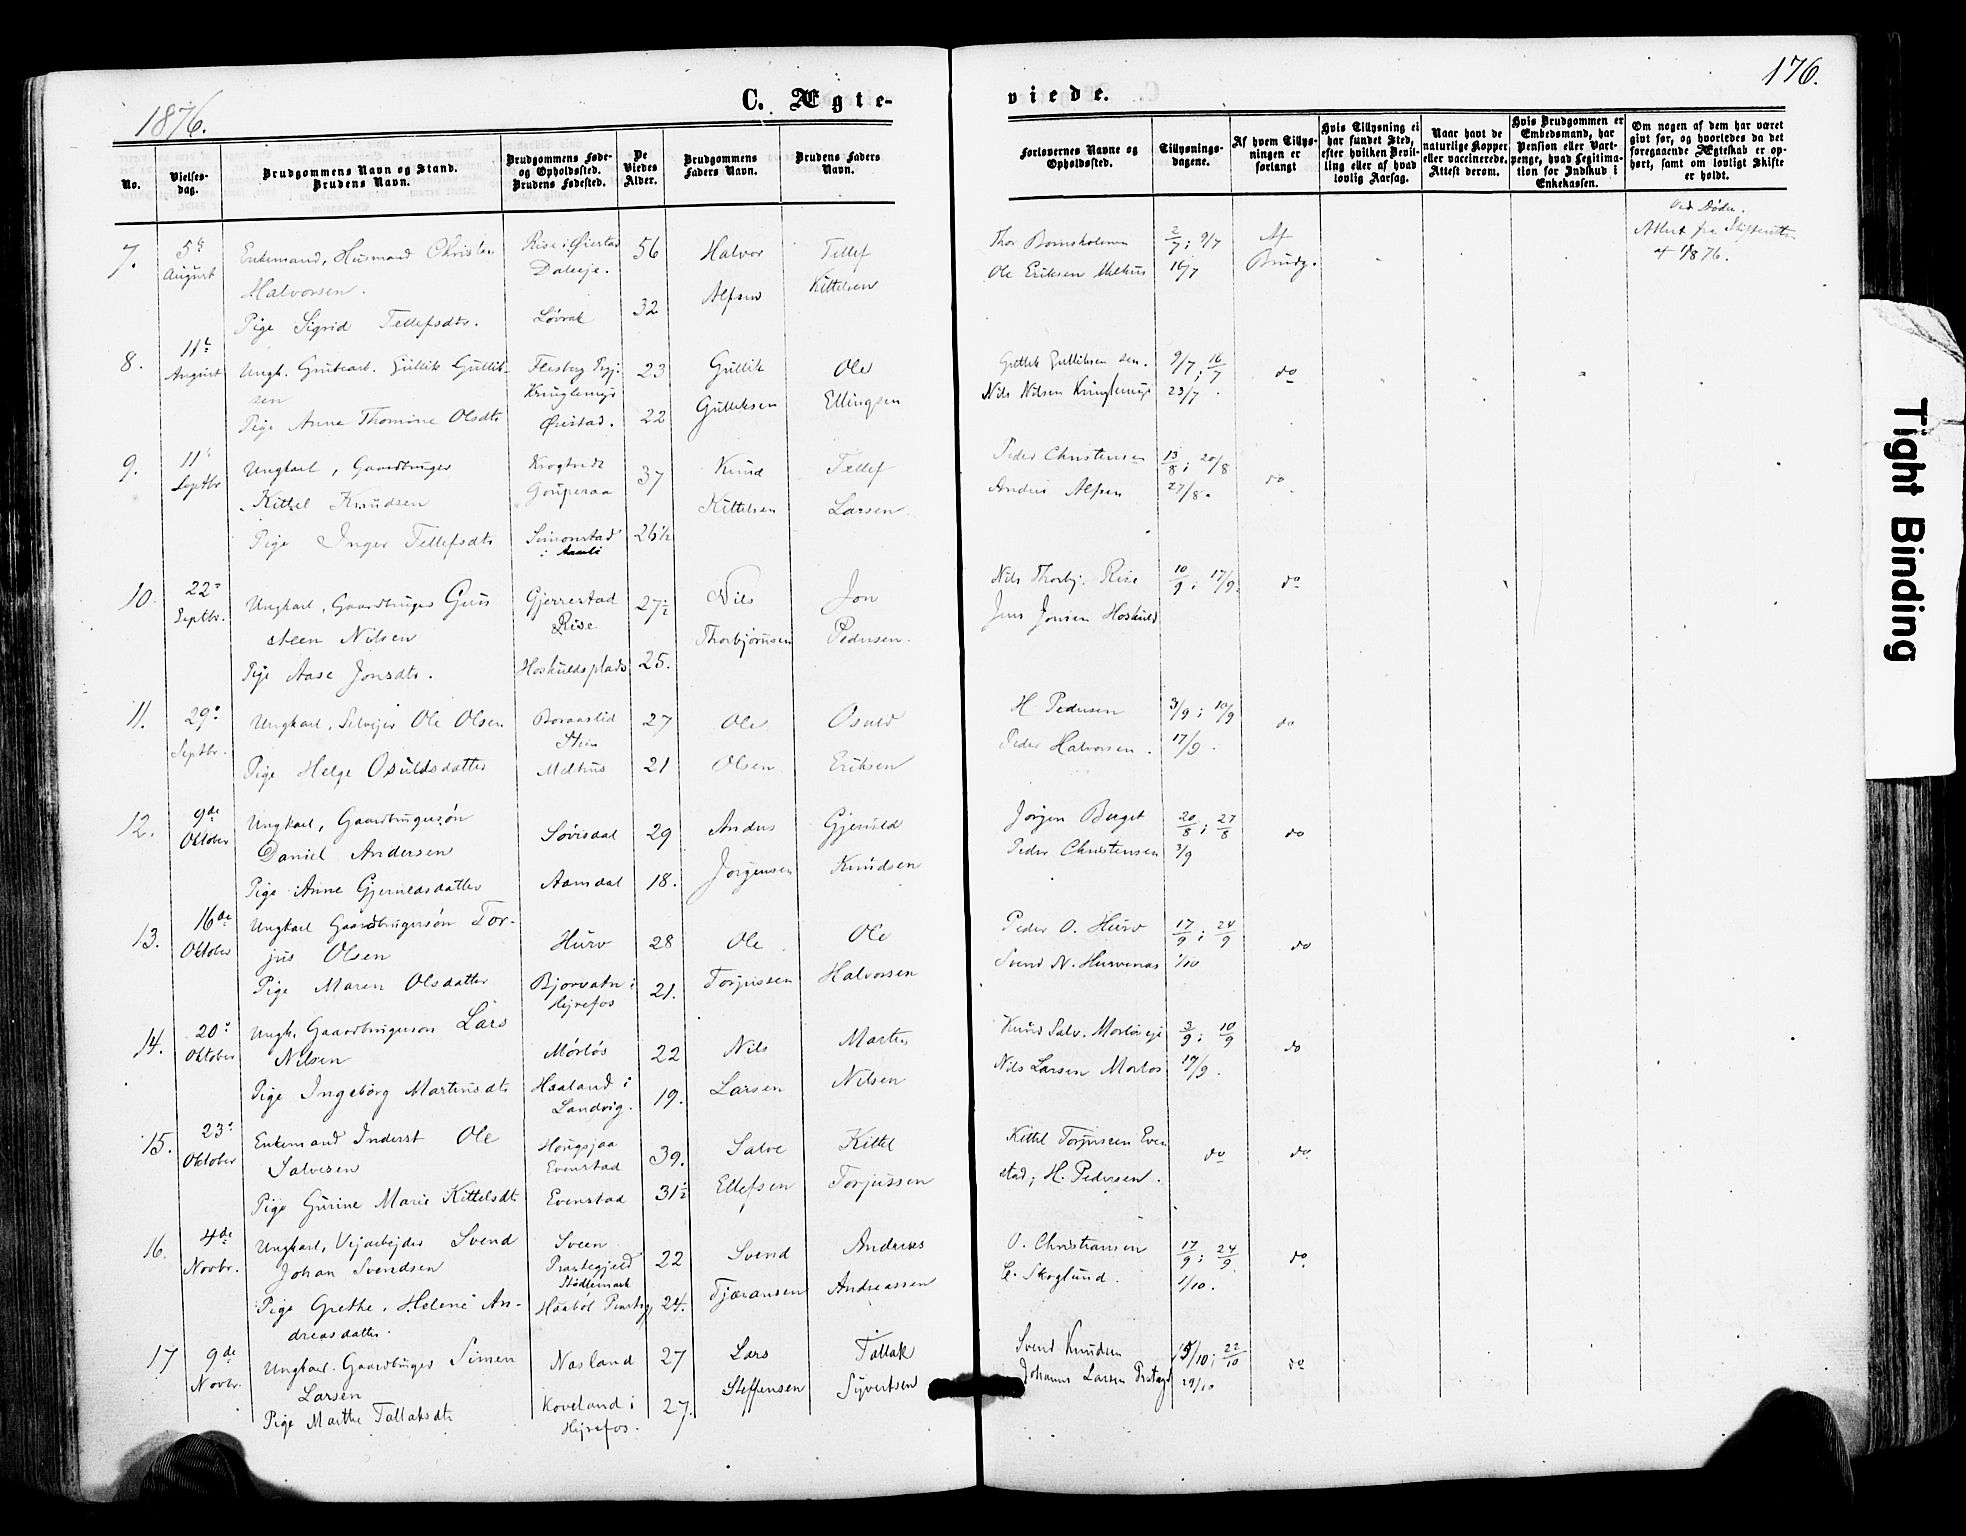 1876.
C. Ægte-
No.
Vielses-
dag.
Brudgommens Navn og Stand.
Brudens Navn.
Brudgommens Føde-
og Opholdssted.
Brudens Fødested.
De
Viedes
Alder.
Brudgommens
Faders Navn.
Brudens Faders
Navn.
7.
5te
August
Enkemand, Husmand Christen
Halvorsen.
Pige Sigrid Tellefsdtr.
Rise i Øiestad
Løvrak
56
32
Halvor
Alfsen
Tellef
Kittelsen
8.
11te
August
Ungk. Grubearb. Gullik Gullik-
sen
Pige Anne Thomine Olsdtr
Flesberg Prgj.
Kringlemyr
Øiestad.
23
22
Gullik
Gulliksen
Ole
Ellingsen
9.
11te
Septbr
Ungkarl, Gaardbruger
Kittel Knudsen
Pige Inger Tellefsdtr
Gouperaa
Simonstad
i Aamli
37
26½
Knud
Kittelsen
Tellef
Larsen.
10.
22de
Septbr.
Ungkarl, Gaardbruger Gun
steen Nilsen
Pige Aase Jonsdtr.
Gjerrestad
Rise
Hoskuldsplads
27½
25.
Nils
Thorbjørnsen
Jon
Pedersen.
11.
29de
Septbr.
Ungkarl, Selveier Ole Olsen
Pige Helge Osuldsdatter
Boraastid
Melhus
27
21
Ole
Olsen
Osuld
Eriksen
12.
9de
Oktober
Ungkarl, Gaardbrugersøn
Daniel Andersen
Pige Anne Gjeruldsdatter
Løvisdal
Aamdal
29
18.
Anders
Jørgensen
Gjeruld
Knudsen
13.
16de
Oktober
Ungkarl Gaardbrugersøn Tor-
jus Olsen
Pige Maren Olsdatter
Hurv
Bjorvatn i
Hejrefos
28
21.
Ole
Torjussen
Ole
Halvorsen
14.
20de
Oktober
Ungk. Gaardbrugerson Lars
Nilsen
Pige Ingeborg Martensdtr
Mörlös
Haaland i
Landvig.
22
19.
Nils
Larsen
Marten
Nilsen
15.
23de
Oktober
Enkemand Inderst Ole
Salvesen
Pige Gurine Marie Kittelsdtr
Hougsjaa
Evenstad
Evenstad
39.
31½
Salve
Ellefsen
Kittel
Torjussen
16.
4de
Novbr.
Ungkarl, Vejarbejder Svend
Johan Svendsen
Pige Grethe Helene An-
dreasdatter.
Sveen
Præstegjeld
Stødlemark
Haabøl Præstegj
22
24.
Svend
Tjæransen
Andreas
Andreassen
17
9de
Novbr.
Ungkarl. Gaardbruger Simen
Larsen
Pige Marthe Tallaksdtr
Nasland
Koveland i
Hejrefos.
27
27.
Lars
Steffensen
Tallak
Syvertsen
176.
viede.
Forlovernes Navne og
Opholdssted.
Tillysnings-
dagene.
Af hvem Tillys-
ningen er
forlangt
Hvis Tillysning ei
har fundet Sted,
efter hvilken Bevil-
ling eller af hvad
lovlig Aarsag.
Naar havt de
naturlige Kopper
eller vaccinerede.
Attest derom.
Hvis Brudgommen er
Embedsmand, har
Pension eller Vart-
penge, hvad Legitima-
tion for Indskud i
Enkekassen.
Om nogen af dem har været
givt før, og hvorledes da det
foregaaende Ægteskab er op-
hørt, samt om lovligt Skifte
er holdt.
Thor Bomsholmen
Ole Eriksen Melhus
2/7; 9/7
16/7
Af
Brudg.
Ved Døden.
Attest fra Skifteretten
Gullik Gulliksen sen.
Nils Nilsen Kringlemyr
9/7; 16/7
23/7.
do
Peder Christensen
Anders Alfsen
13/8; 20/8
27/8.
do
Nils Thorbj. Rise
Jens Jonsen Hoskuld
10/9; 17/9
do
H Pedersen
Peder Halvorsen.
3/9; 10/9
17/9.
do
Jørgen Berget
Peder Christensen
20/8; 27/8
3/9
do
Peder O. Hurv
Svend N. Hurvenæs
17/9; 24/9
1/10
do
Knud Salv. Morløseje
Nils Larsen Morløs
3/9; 10/9
17/9.
do
Kittil Torjussen Even
stad; H. Pedersen.
do
do
O. Christiansen
C. Skoglund.
17/9; 24/9
1/10.
do
Svend Knudsen
Johannes Larsen Prstegd
15/10; 22/10
29/10
do
Tight Binding